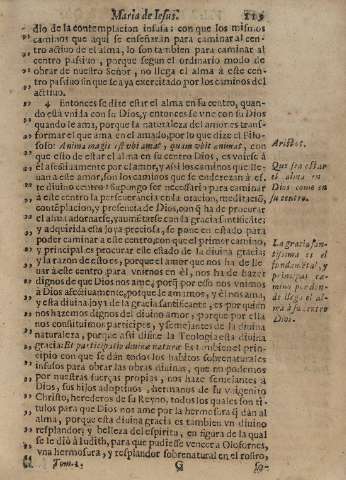 Maria de Iesus. 119
dio de la contemplacion infusa: con que los mismos
caminos que aqui se enseñarán para caminar al cen-
tro activo de el alma, lo son tambien para caminar al
centro passivo, porque segun el ordinario modo de
obrar de nuestro Señor, no llega el alma à este cen-
tro passivo sin que se aya exercitado por los caminos del
activo.
4 Entonces se dize estar el alma en su centro, quan-
do està vnida con su Dios, y entonces se vne con su Dios
quando le ama, porque la naturaleza del amor es trans-
formar el que ama en el amado, por lo que dize el Filo-
sofo: Anima magis est vbi amat, quam vbi animat, con
que esto de estar el alma en su centro Dios, es vnirse à
èl afectivamente por el amor, y assi los caminos que lle-
van à este amor, son los caminos que se endereçan à es-
te divino centro: supongo ser necessario para caminar
à este centro la perseverancia en la oracion, meditaciõ,
contemplacion, y presencia de Dios, con q̃ ha de procurar
el alma adornarse, y aumentarse con la gracia santificãte:
y adquirida essa joya preciosa, se pone en estado para
poder caminar à este centro; con que el primer camino,
y principal es procurar este estado de la divina gracia;
y la razon de esto es, porque el amor que nos ha de lle-
var à este centro, para vnirnos en èl, nos ha de hazer
dignos de que Dios nos ame, porq̃ por esso nos vnimos
à Dios afectivamente, porque le amamos, y èl nos ama,
y esta divina joya de la gracia santificante, es por quien
nos hazemos dignos del divino amor; porque por ella
nos constituimos participes, y semejantes de la divina
naturaleza, porque assi difine la Teologia esta divina
gracia: Est participatio divinæ naturæ. Es tambien el prin-
cipio con que se dàn todos los habitos sobrenaturales
infusos para obrar las obras divinas, que no podemos
por nuestras fuerças propias, nos haze semejantes à
Dios, sus hijos adoptivos, hermanos de su vnigenito
Christo, herederos de su Reyno, todos los quales son ti-
tulos para que Dios nos ame por la hermosura q̃ dàn al
alma, porque esta divina gracia es tambien vn divino
resplandor, y belleza del espiritu, en figura de la qual
se le diò à Iudith, para que pudiesse vencer à Olofornes,
vna hermosura, y resplandor sobrenatural en el rostro,
Tom. 1. G
Aristot.
Que sea estar
el alma en
Dios como en
su centro.
La gracia san-
tissima es el
fundamẽtal, y
principal ca-
mino por don-
de llega el al-
ma à su centro
Dios.